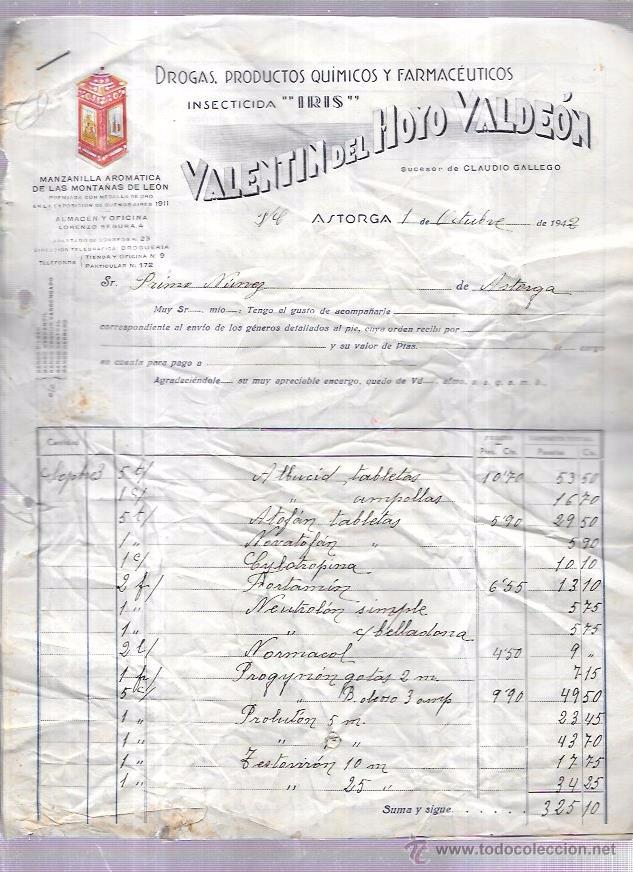 DROGAS, PRODUCTOS QUÍMICOS Y FARMACÉUTICOS
INSECTICIDA "IRIS"
VALENTIN DEL HOYO VALDEÓN
Sucesor de CLAUDIO GALLEGO
MANZANILLA AROMATICA
DE LAS MONTAÑAS DE LEON
PREMIADA CON MEDALLA DE ORO
EN LA EXPOSICION DE BUENOS AIRES 1911
ALMACEN Y OFICINA
LORENZO SEGURA, 4
APARTADO DE CORREOS N. 23
DIRECCION TELEGRAFICA: DROGUERIA
TELEFONOS { TIENDA Y OFICINA N. 9
PARTICULAR N. 172
ASTORGA 1 de Octubre de 1942
Sr. Primo Núñez de Astorga
Muy Sr. mio : Tengo el gusto de acompañarle
correspondiente al envío de los géneros detallados al pie, cuya orden recibí por
y su valor de Ptas. de cargo
en cuenta para pago a
Agradeciéndole su muy apreciable encargo, quedo de Vd. afmo. s. s. q. s. m. b.,
Cantidad PRECIO Ptas. Cts. Pesetas Cts.
Septe 3 5 t/ Albucid tabletas 10'70 53 50
1 c/ " ampollas 16 70
5 t/ Atofán tabletas 5'90 29 50
1 " Novatofán " 5 90
1 c/ Cylotropina 10 10
2 f/ Fortamín 6'55 13 10
1 " Neutrolón simple 5 75
1 " " c/ belladona 5 75
2 l/ Normacol 4'50 9 "
1 f/ Progynón gotas 2 m. 7 15
5 c/ " B. oleoso 3 amp 9'90 49 50
1 " Prolutón 5 m. 23 45
1 " " " 43 70
1 " Testovirón 10 m 17 75
1 " " 25 " 34 25
Suma y sigue 325 10
www.todocoleccion.net